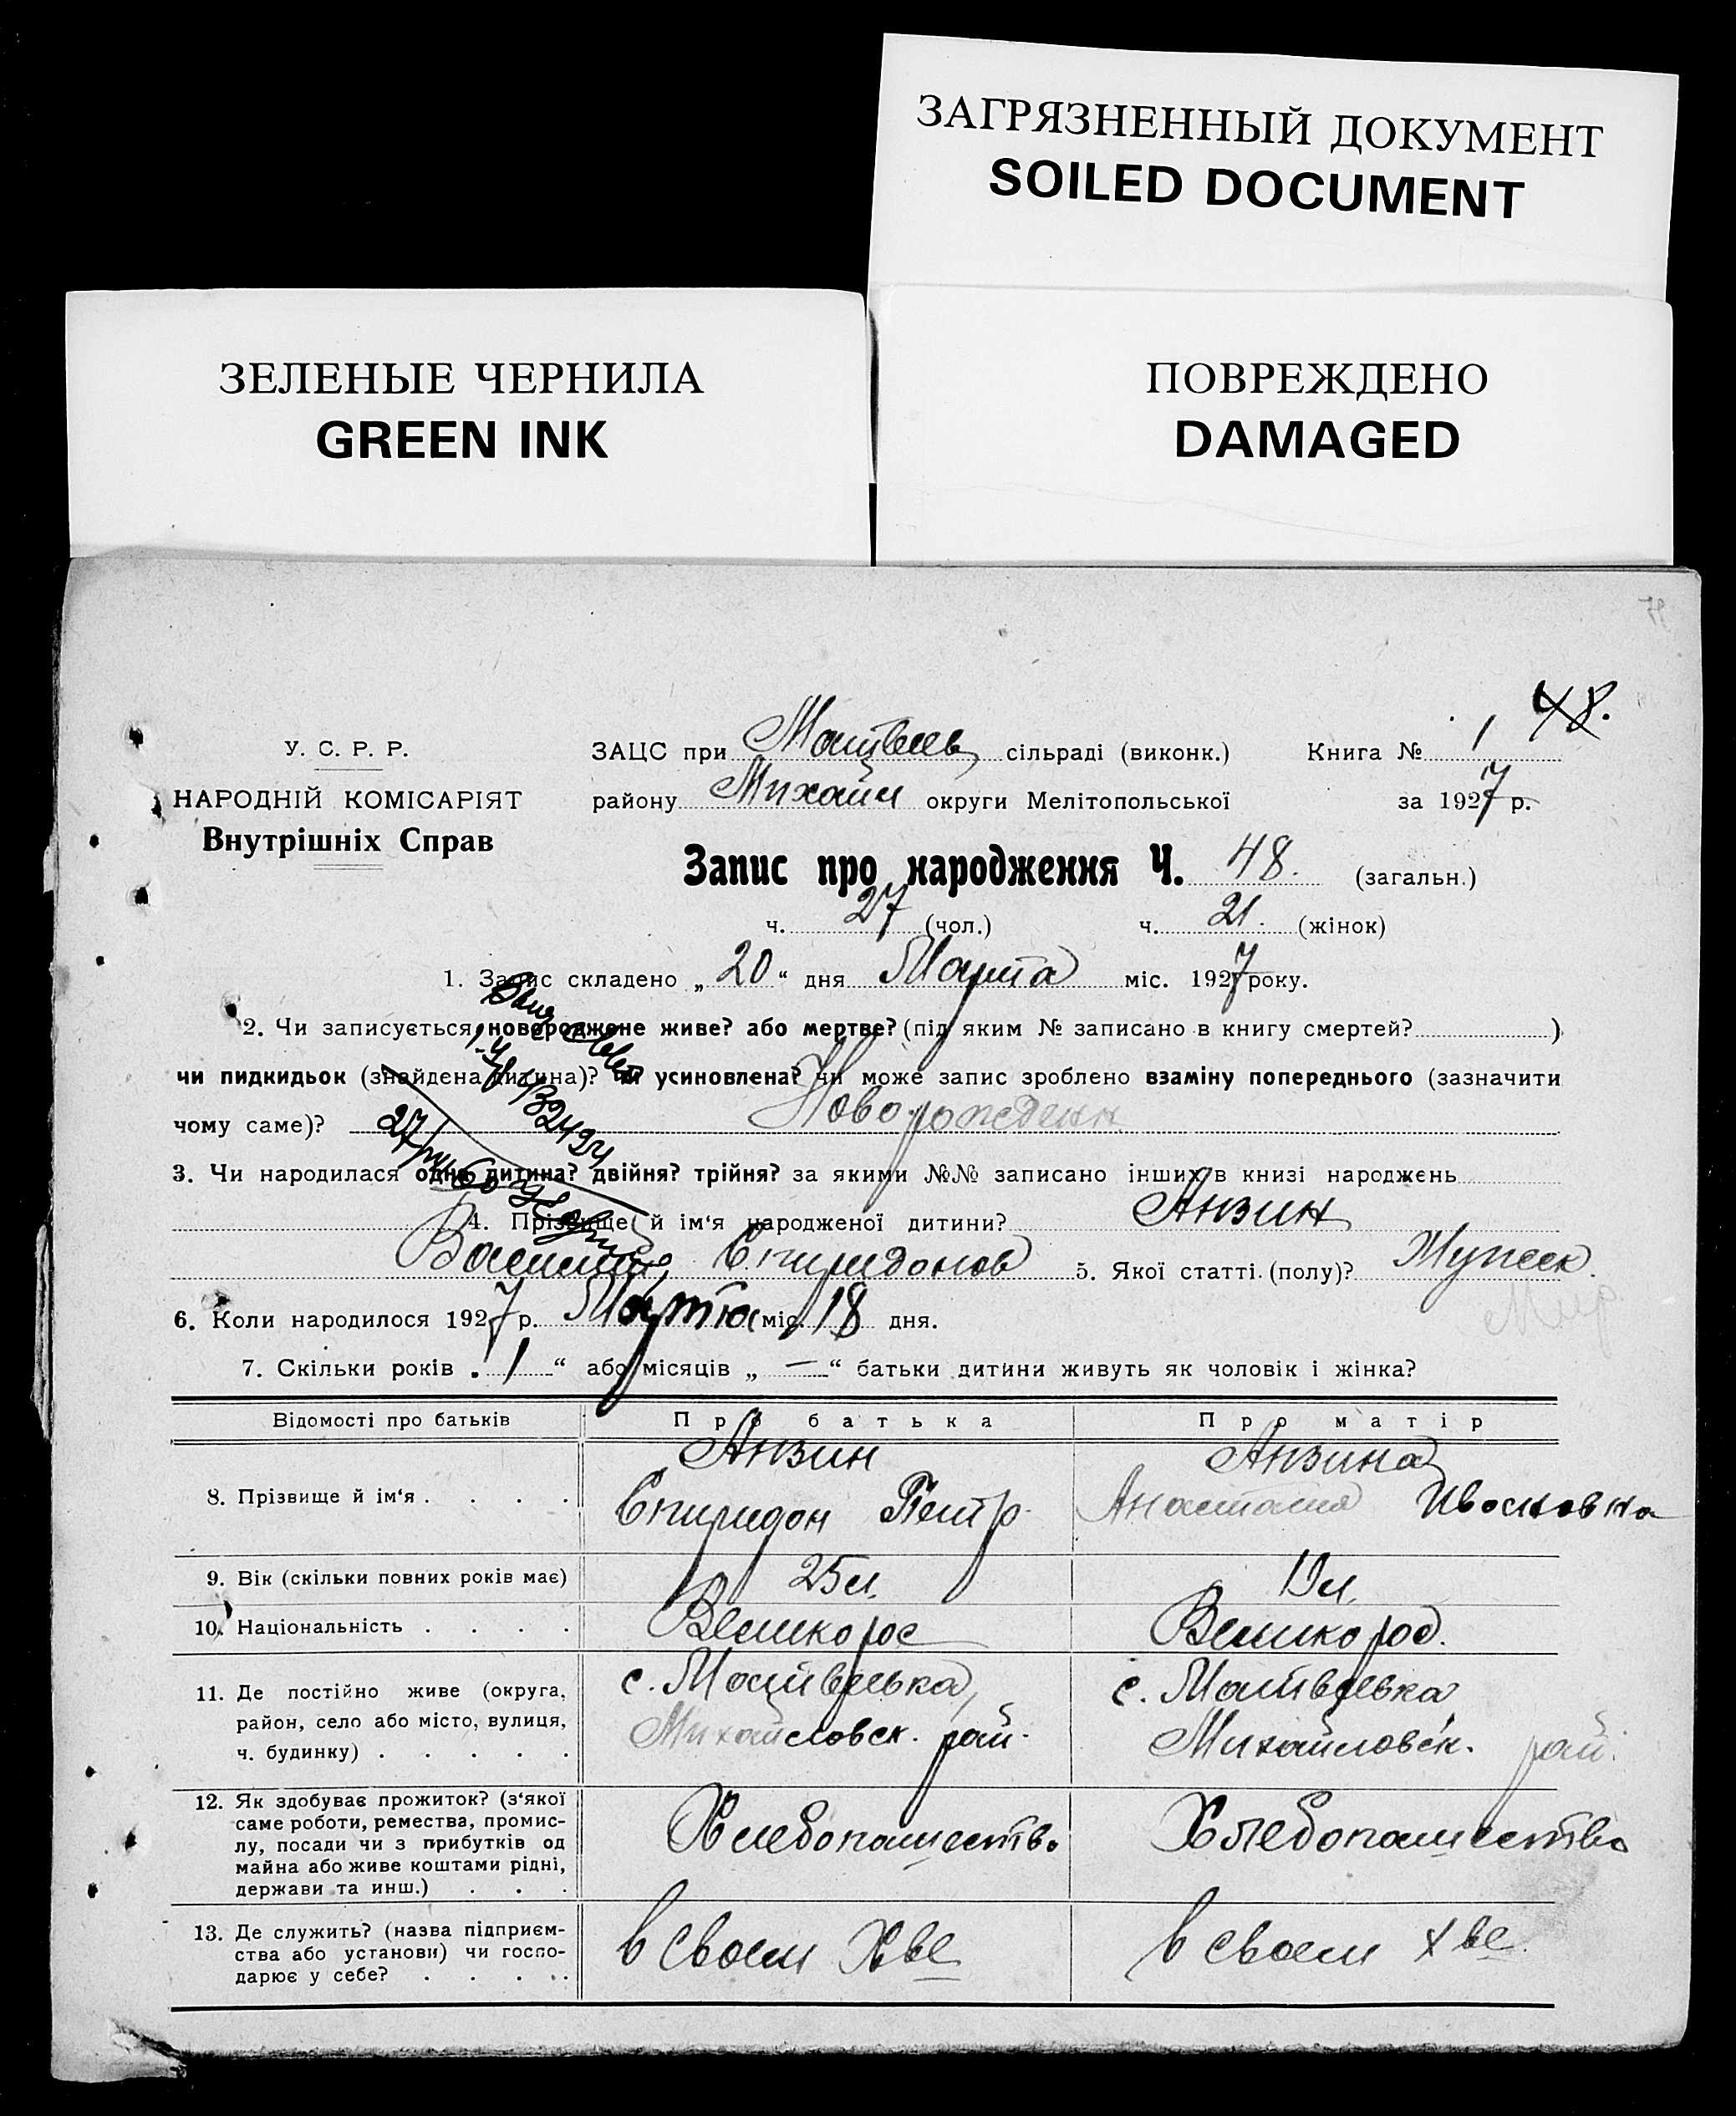 ЗАГРЯЗНЕННЫЙ ДОКУМЕНТ
SOILED DOCUMENT
ЗЕЛЕНЫЕ ЧЕРНИЛА
GREEN INK
ПОВРЕЖДЕНО
DAMAGED
48.
У. С. Р. Р.
НАРОДНІЙ КОМІСАРІЯТ
Внутрішніх Справ
ЗАЦС при Матвеев сільраді (виконк.) Книга № 1
району Михайл округи Мелітопольської за 1927 р.
Запис про народження Ч. 48. (загальн.)
ч. 27 (чол.) ч. 21. (жінок)
1. Запис складено „ 20 “ дня Марта міс. 1927 року.
2. Чи записується новороджене живе? або мертве? (під яким № записано в книгу смертей? )
чи пидкидьок (знайдена дитина)? чи усиновлена? чи може запис зроблено взаміну попереднього (зазначити
чому саме)? Новорожденн
3. Чи народилася одна дитина? двійня? трійня? за якими №№ записано інших в книзі народжень
4. Прізвище й ім‘я народженої дитини? Анзин
Василий Спиридонов 5. Якої статті (полу)? Мужск.
6. Коли народилося 1927 р. Марта міс. 18 дня.
7. Скільки років „ 1 “ або місяців „ — “ батьки дитини живуть як чоловік і жінка?
Відомості про батьків Про батька Про матір
8. Прізвище й ім‘я . . . . Анзин Анзина
Спиридон Петр. Анастасия
9. Вік (скільки повних років має) 25 л. 19 л.
10. Національність . . . . Великорос Великорос.
11. Де постійно живе (округа, с. Матвеевка, с. Матвеевка
район, село або місто, вулиця, Михайловск. рай. Михайловск. рай.
ч. будинку) . . . . .
12. Як здобуває прожиток? (з‘якої
саме роботи, ремества, промис-
лу, посади чи з прибутків од Хлебопашество Хлебопашество
майна або живе коштами рідні,
держави та инш.) . . .
13. Де служить? (назва підприєм-
ства або установи) чи госпо- в своем Хве в своем хве
дарює у себе? . . . . .